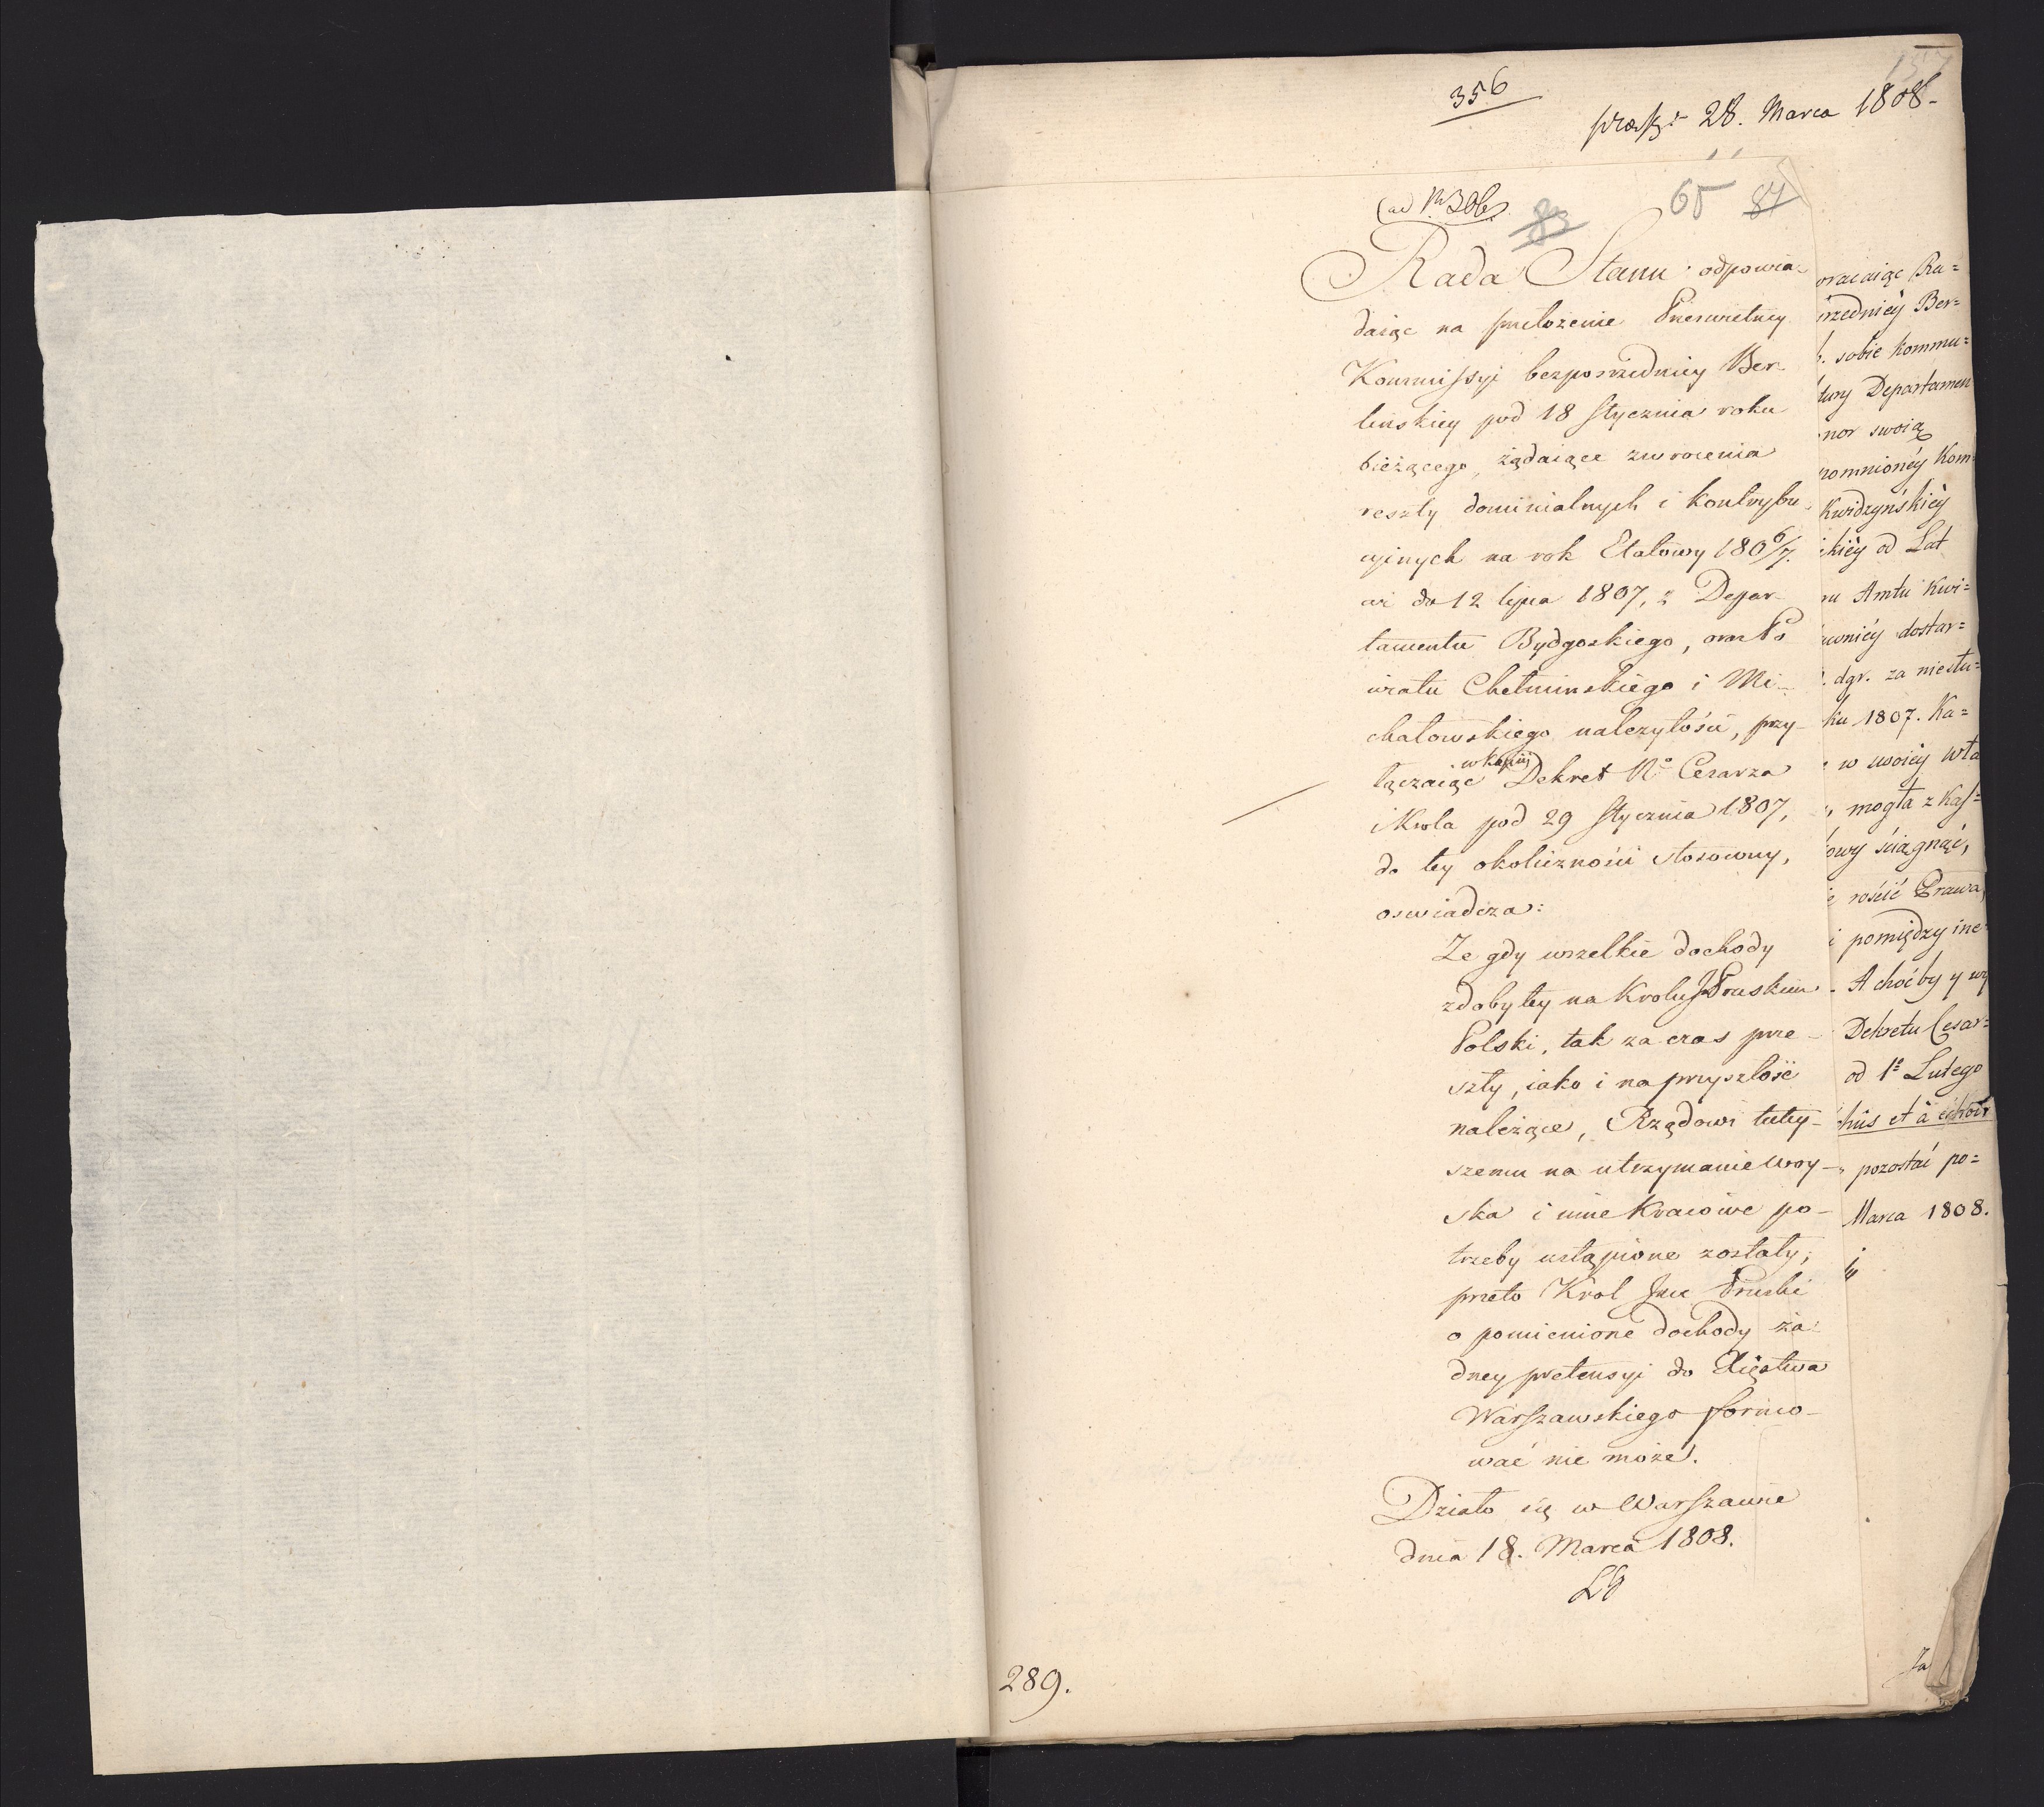 356
28. Marca 1808.
(ad Nr 306)
83
65 87
Rada Stanu odpowia-
daiąc na przełożenie Prześwietney
Kommissyi bezpośredniey Ber-
linskiey pod 18 Stycznia roku
bieżącego, żądaiące zwrocenia
reszty dominialnych i kontrybu-
cyinych na rok Etatowy 180 6/7.
aż do 12 lipca 1807, z Depar-
tamentu Bydgoskiego, oraz Po
wiatu Chełminskiego i Mi-
chałowskiego należytości, przy-
łączaiąc w kopii Dekret No Cesarza
i Krola pod 29 Stycznia 1807,
do tey okoliczności stosowny,
oswiadcza:
Ze gdy wszelkie dochody
zdobytey na Krolu J Pruskim
Polski, tak za czas prze-
szły, iako i na przyszłość
należące, Rządowi tutey-
szemu na utrzymanie woy-
ska i inne kraiowe po-
trzeby ustąpione zostały;
przeto Krol Jmc Pruski
o pomienione dochody ża-
dney pretensyi do Xięstwa
Warszawskiego formo-
wać nie może.
Działo się w Warszawie
dnia 18. Marca 1808.
289.
wracaiąc Ra=
srzedniey Ber=
sobie kommu=
tury Departamen
nor swoią
pomnioney Kom=
Kwidzyńskiey
skiéy od Lat
ru Amtu Kwi=
awniéy dostar=
dgr. za niesłu=
ku 1807. Ka=
w swoiey wła
mogła z Kas=
owy ściągnąć,
rościć Prawa,
i pomiędzy ine
A choćby y wy
Dekretu Cesar=
od 1o Lutego
chûs et à echoir
pozostać po=
Marca 1808.
Ja